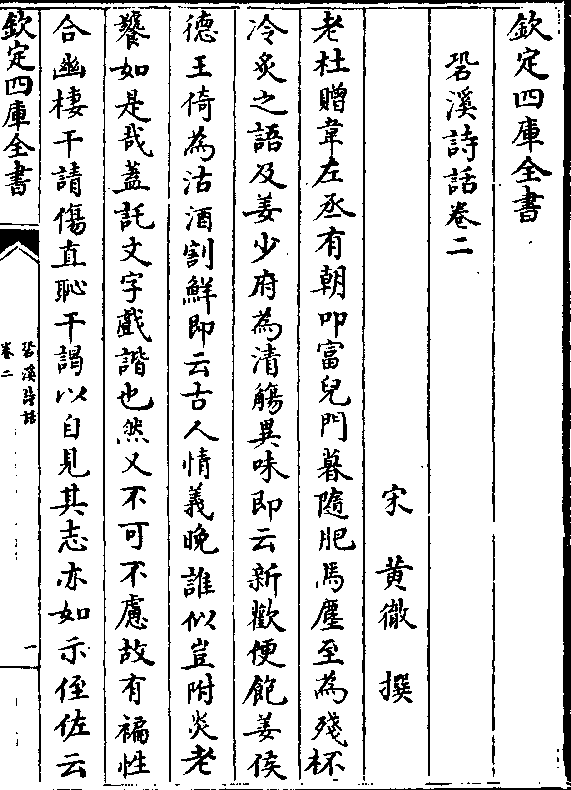 欽定四庫全書
䂬溪詩話卷二
宋 黄徹 撰
老杜贈韋左丞有朝叩富兒門暮隨肥馬塵至為殘杯
冷炙之語及姜少府為清觴異味即云新歡便飽姜侯
德王倚為沽酒割鮮即云古人情義晚誰似豈附炎老
饕如是哉蓋託文字戲諧也然又不可不慮故有褊性
合幽棲干請傷直恥干謁以自見其志亦如示侄佐云
欽定四庫全書
䂬溪詩話
卷二
一